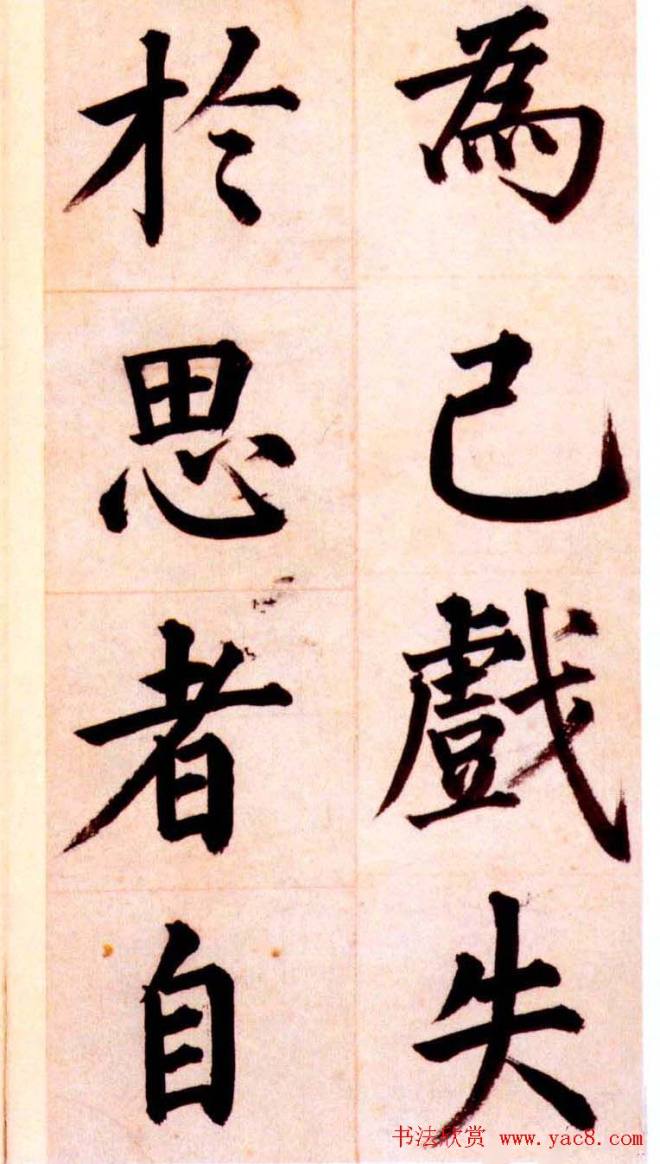 為己戲失
於思者自
书法欣赏 www.yac8.com